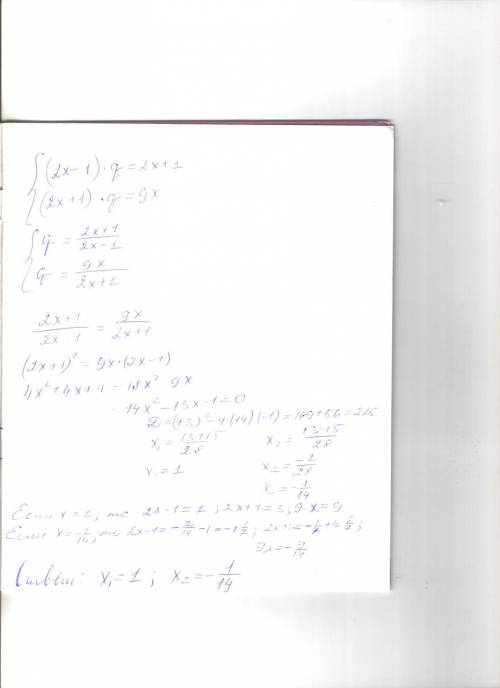 (2x-1)·q=2x+1
(2x+1)·q=9x
q = \frac{2x+1}{2x-1}
q = \frac{9x}{2x+1}
\frac{2x+1}{2x-1} = \frac{9x}{2x+1}
(2x+1)²=9x·(2x-1)
4x²+4x+1=18x²-9x
-14x²-13x-1=0
D=(13)²-4·(14)·(-1)=169+56=225
x₁=\frac{13+15}{28} x₂=\frac{13-15}{28}
x₁=1 x₂=\frac{-2}{28}
x₂=-\frac{1}{14}
Если x=1, то 2x-1=1; 2x+1=3; 9·x=9
Если x=-\frac{1}{14}, то 2x-1=-\frac{2}{14}-1=-1\frac{1}{7}; 2x+1=-\frac{1}{7}+1=\frac{6}{7};
9x=-\frac{9}{14}
Ответ: x₁=1; x₂=-\frac{1}{14}